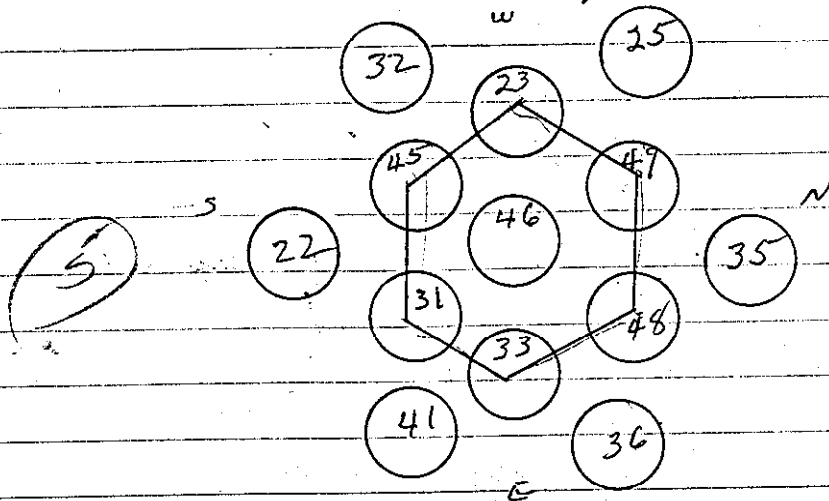 W
32 25
23
45 49
S N
46
5 22 35
31 48
33
41 36
E